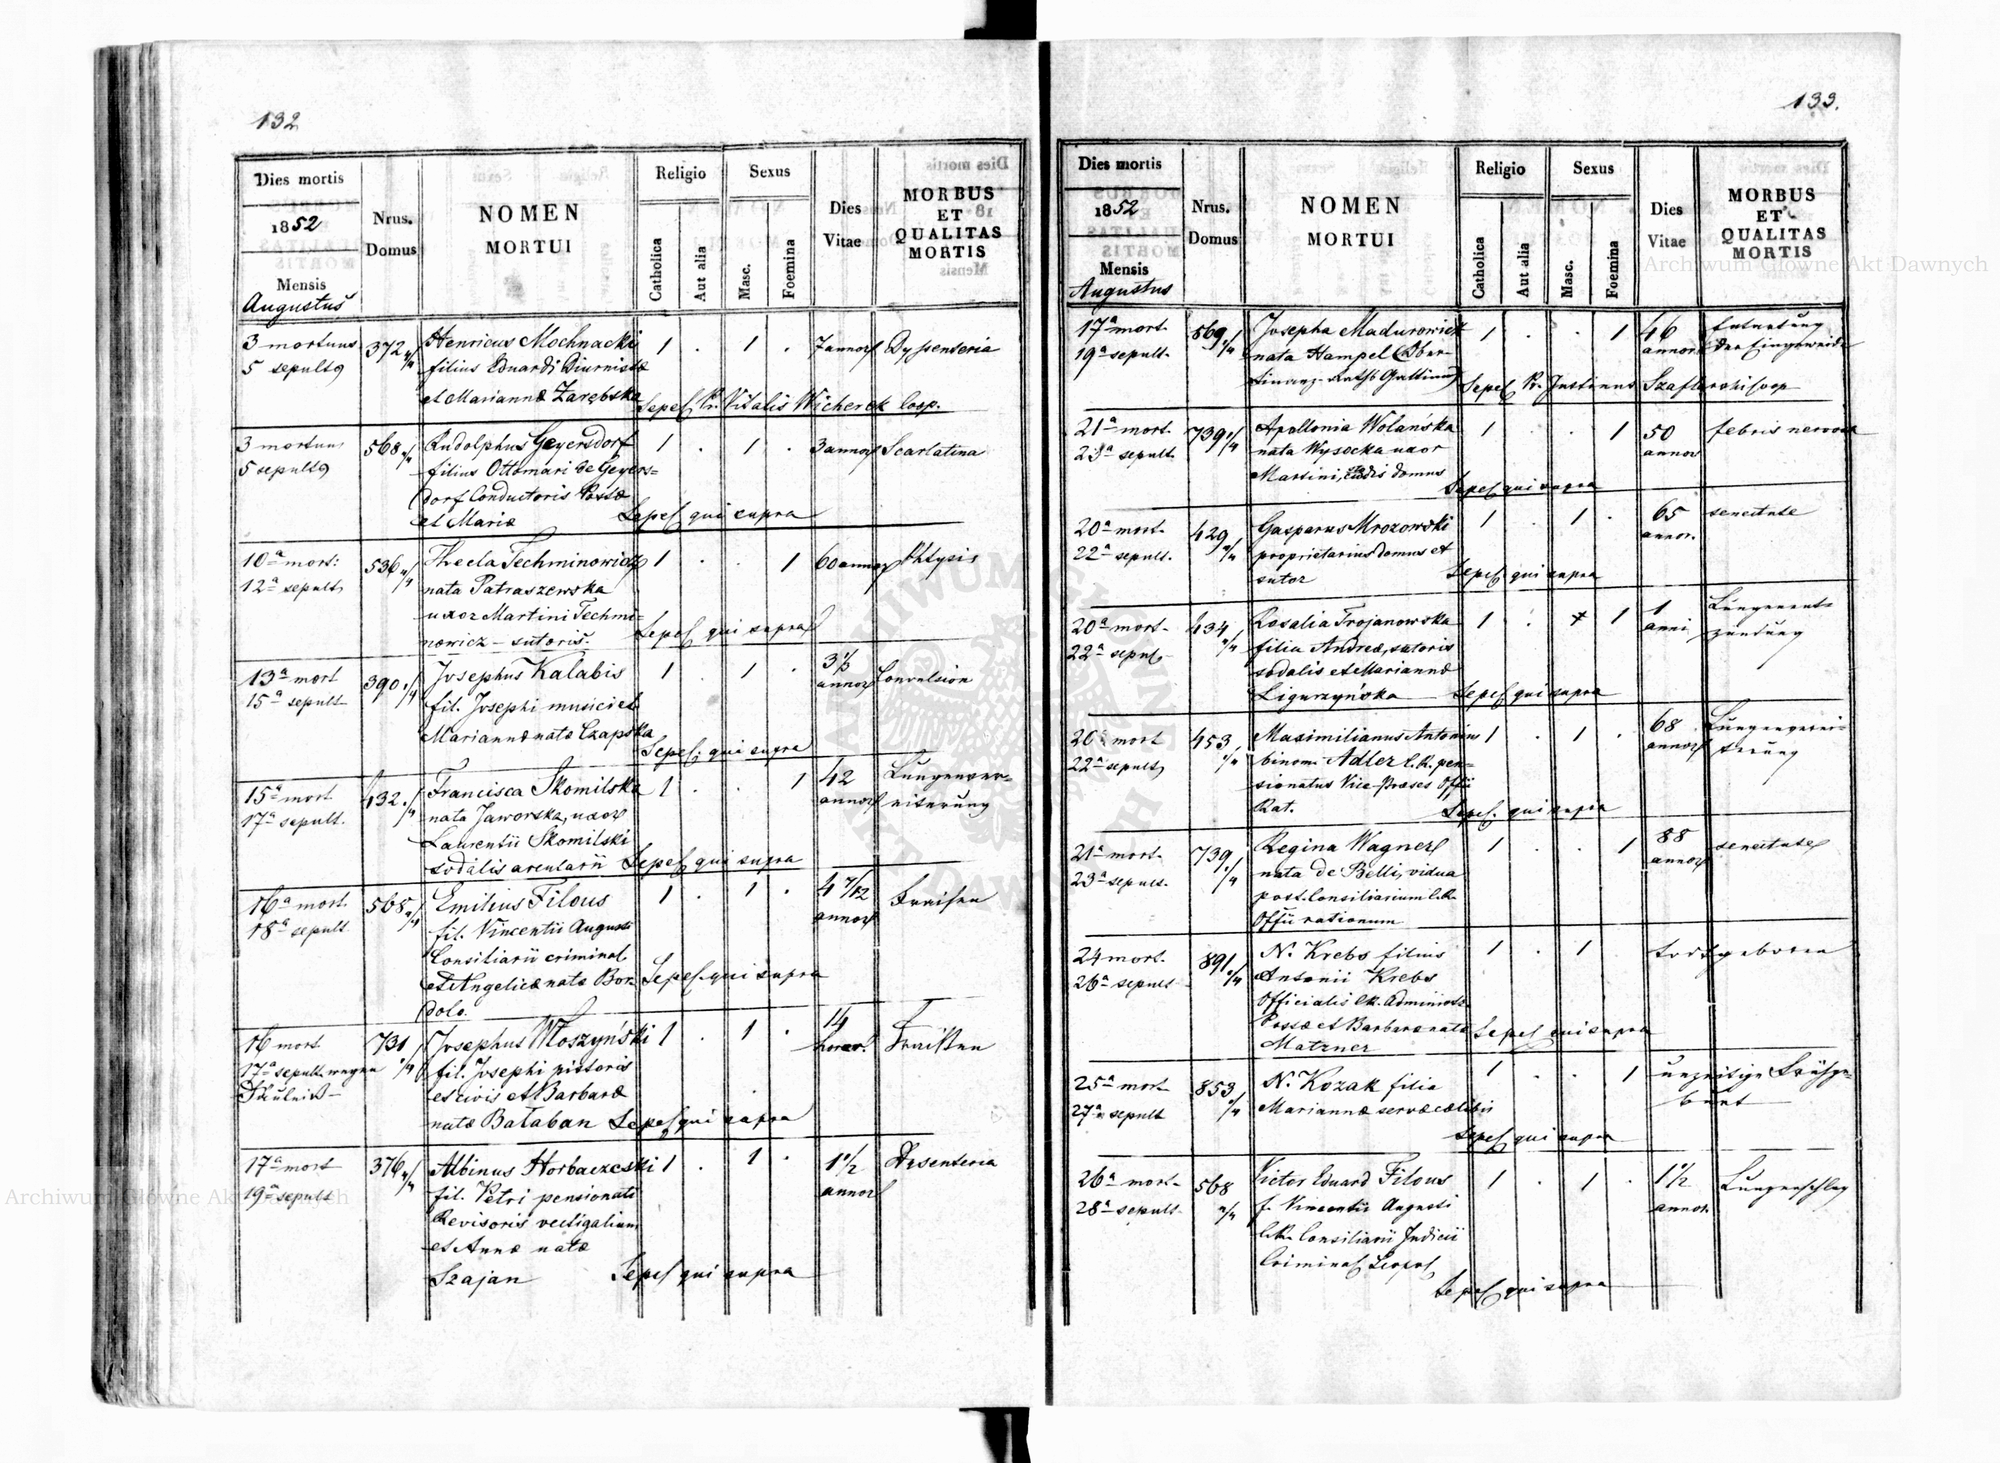 132
Dies mortis
1852
Mensis
Augustus
Nrus.
Domus
NOMEN
MORTUI
Religio
Catholica
Aut alia
Sexus
Masc.
Foemina
Dies
Vitae
MORBUS
ET
QUALITAS
MORTIS
3 mortuus 372 Henricus Mochnacki 1 . 1 . 7 annor Dysenteria
5 sepult filius Eduardi Diurnistæ
et Mariannæ Zarębska
Sepel Vitalis Wicherek Coop.
3 mortuus 568 Rudolphus Geyersdorf 1 . 1 . 3 annor Scarlatina
5 sepult filius Ottomari de Geyers=
dorf Conductoris Postæ
et Mariæ Sepel qui supra
10a mort: 536 Thecla Techminowicz 1 . . 1 60 annor Phtysis
12a sepult nata Patraszewska
uxor Martini Techmi-
nowicz - sutoris Sepel qui supra
13a mort 390 Josephus Kalabis 1 . 1 . 3 1/3 annor Convulsion
15a sepult fil. Josephi musici et
Mariannæ natæ Czapska
Sepel qui supra
15a mort 432 Francisca Skomilska 1 . . 1 42 annor Lungenver-
17a sepult. nata Jaworska, uxor eiterung
Laurentii Skomilski
sodalis arcularii Sepel qui supra
16a mort. 568 Emilius Filous 1 . 1 . 4 7/12 annor Fraisen
18a sepult fil. Vincentii Augusti
Consiliarii criminal.
et Angelicæ natæ Bor-
dolo. Sepel qui supra
16 mort 731 Josephus Włoszyński 1 . 1 . 14 horar. Fraisen
17a sepult wegen fil. Josephi pistoris
Fäulniß et civis et Barbaræ
natæ Bałaban Sepel qui supra
17a mort 376 Albinus Horbaczeski 1 . 1 . 1 1/2 annor Dysenteria
19a sepult fil. Petri pensionati
Revisoris vectigalium
et Annæ natæ
Szajan Sepel qui supra
133.
Dies mortis
1852
Mensis
Augustus
Nrus.
Domus
NOMEN
MORTUI
Religio
Catholica
Aut alia
Sexus
Masc.
Foemina
Dies
Vitae
MORBUS
ET
QUALITAS
MORTIS
17a mort. 569 Josepha Madurowicz 1 . . 1 46 annor Entartung
19a sepult. nata Hampel Ober- der Eingeweide
finanz-Raths Gattinn
Sepel Justinus
21a mort. 739 Apollonia Wolańska 1 . . 1 50 annor febris nervosa
23a sepult. nata Wysocka uxor
Martini, domus
Sepel qui supra
20a mort. 429 Gasparus Mrozowski 1 . 1 . 65 annor. senectute
22a sepult. proprietarius domus et
sutor Sepel qui supra
20a mort. 434 Rosalia Trojanowska 1 . 1 1 anni Lungenent-
22a sepul filia Andreæ, sutoris zündung
sodalis et Mariannæ
Ligurzyńska Sepel qui supra
20a mort 453 Maximilianus Antonius 1 . 1 . 68 annor Lungenverei-
22a sepult binom. Adler C.R. pen- terung
sionatus Vice-Præses Offii
Rat. Sepel qui supra
21a mort. 739 Regina Wagner 1 . . 1 88 annor senectute
23a sepult. nata de Belli, vidua
post Consiliarium C.R.
Offii rationum
24 mort. 891 N. Krebs filius 1 . 1 todtgeboren
26a sepult Antonii Krebs
Officialis CR. Administ.
Postæ et Barbaræ natæ
Matzner Sepel qui supra
25a mort 853 N. Kozak filia 1 . . 1 unzeitige Frühge-
27a sepult Mariannæ servæ cælibis burt
Sepel qui supra
26a mort. 568 Victor Eduard Filous 1 . 1 . 1 1/2 annor Lungenschlag
28a sepult f. Vincentii Augusti
C.R. Consiliarii Judicii
Criminal Leopol
Sepel qui supra
Archiwum Główne Akt Dawnych
Archiwum Główne Akt Dawnych
ARCHIWUM GŁÓWNE AKT DAWNYCH